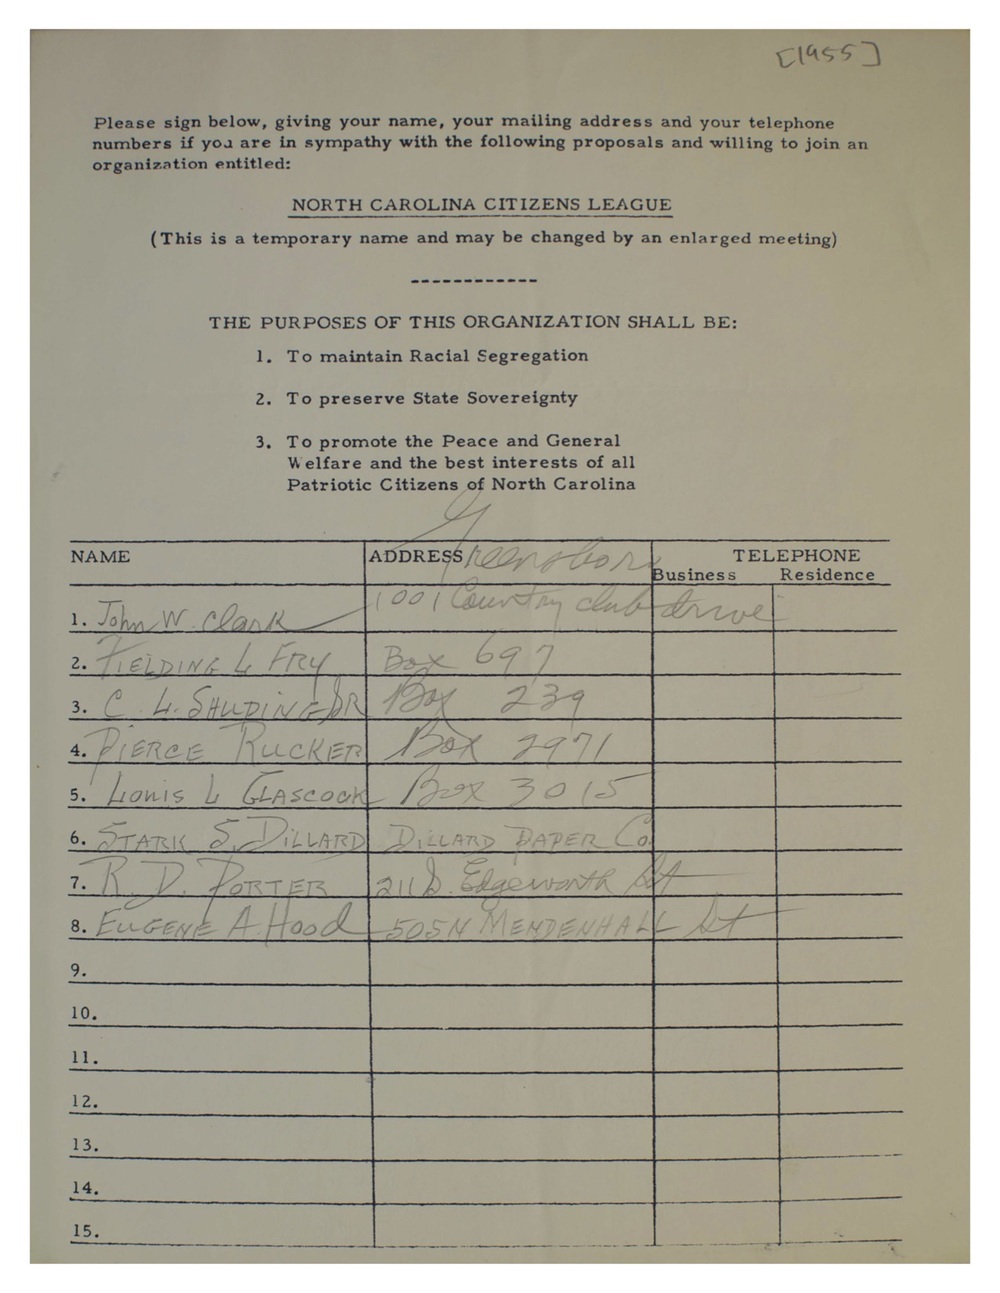 [1955]
Please sign below, giving your name, your mailing address and your telephone
numbers if you are in sympathy with the following proposals and willing to join an
organization entitled:
NORTH CAROLINA CITIZENS LEAGUE
(This is a temporary name and may be changed by an enlarged meeting)
------------
THE PURPOSES OF THIS ORGANIZATION SHALL BE:
1. To maintain Racial Segregation
2. To preserve State Sovereignty
3. To promote the Peace and General
Welfare and the best interests of all
Patriotic Citizens of North Carolina
NAME ADDRESS Greensboro TELEPHONE
Business Residence
1. John W. Clark 1001 Country club drive
2. FIELDING L FRY Box 697
3. C. L. SHUPING SR Box 239
4. PIERCE RUCKER Box 2971
5. Louis L GLASCOCK Box 3015
6. STARK S. DILLARD DILLARD PAPER Co.
7. R. D. PORTER 211 S. Edgeworth St
8. EUGENE A. Hood 505 N MENDENHALL St
9.
10.
11.
12.
13.
14.
15.